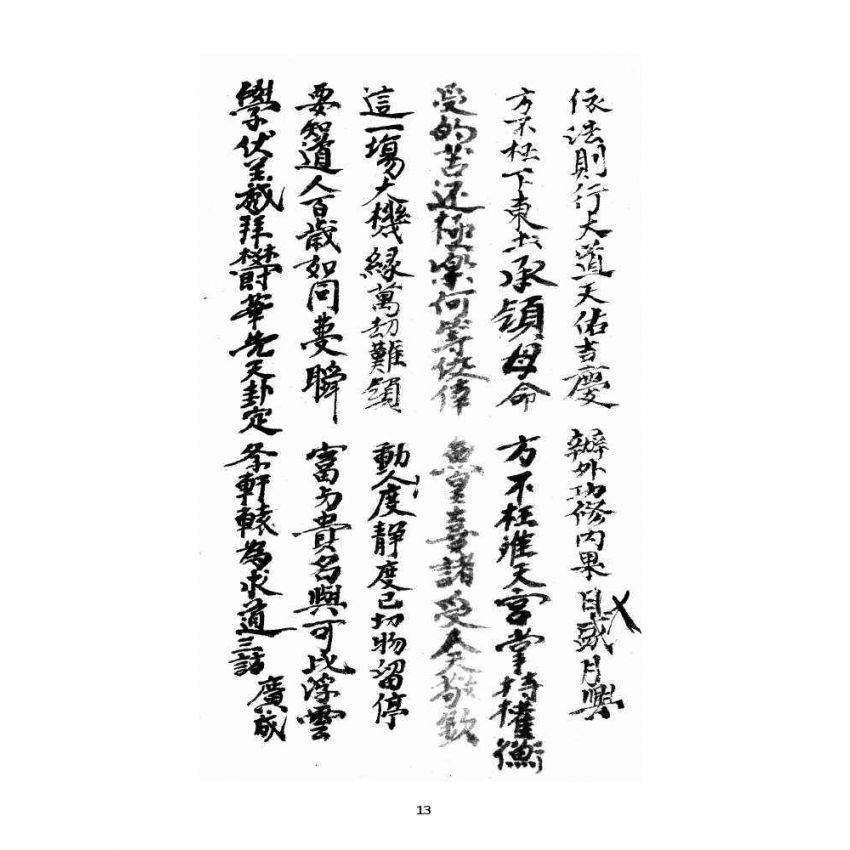 依法則行大道天佑吉慶　辦外功修內果日盛月興
方不枉下東土承領母命　方不枉進天宮掌持權衡
受的苦还極樂何等俊偉　無皇喜諸受人天敬欽
這一塲大機緣萬劫難領　動人度靜度己切物留停
要知道人百歲如同夢瞬　富与貴名與可比浮雲
學伏羲拜欝華先天卦定　条軒轅為求道三話廣成
13